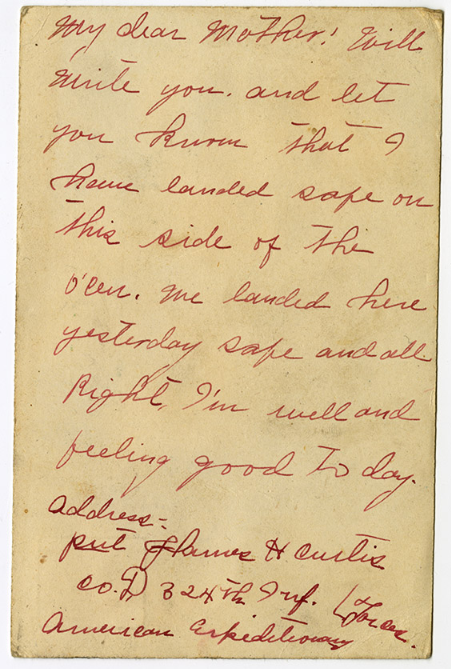 My dear Mother! Will
write you. and let
you know that I
have landed safe on
this side of the
o'cen. we landed here
yesterday safe and all
Right, I'm well and
feeling good to day.
address-:
put James H Curtis
co. D 324th Inf.
American Expeditionary Forces.